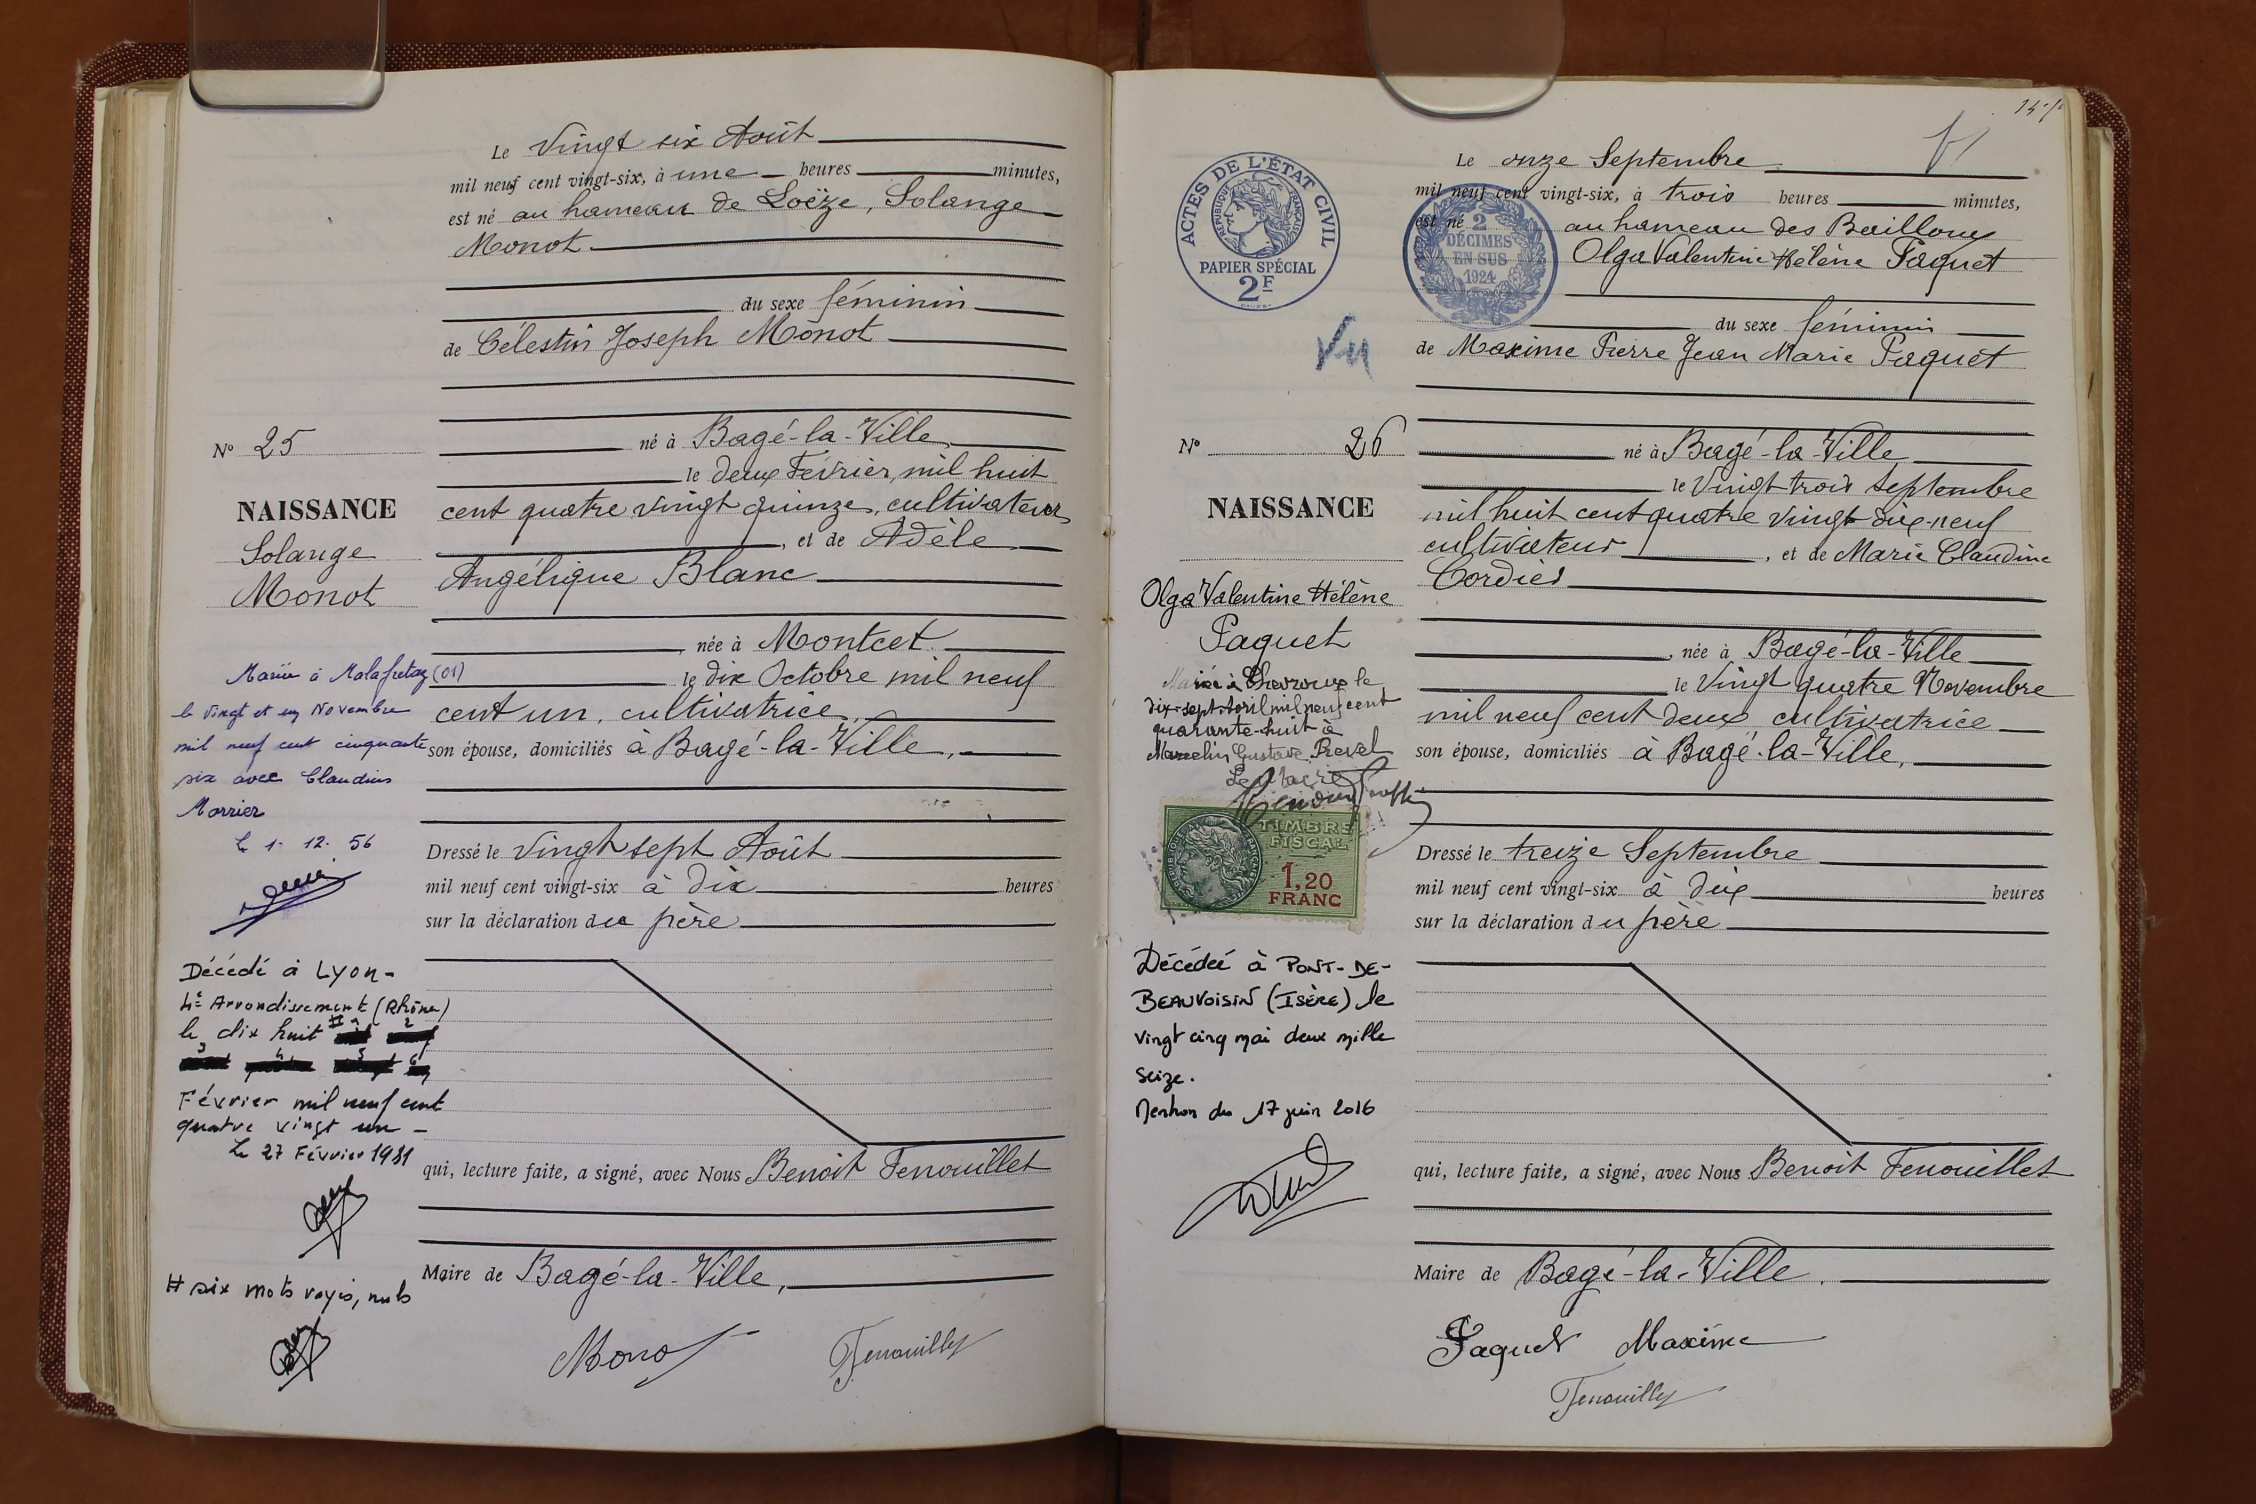 Le Vingt six Août
mil neuf cent vingt-six, à une heures minutes,
est né au hameau de Loëze, Solange
Monot
du sexe féminin
de Célestin Joseph Monot
né à Bagé-la-Ville
le deux Février, mil huit
cent quatre vingt quinze, cultivateur
, et de Adèle
Angélique Blanc
, née à Montcet
le dix Octobre mil neuf
cent un, cultivatrice,
son épouse, domiciliés à Bagé-la-Ville,
Dressé le vingt sept Août
mil neuf cent vingt-six à dix heures
sur la déclaration du père
qui, lecture faite, a signé, avec Nous Benoit Fenouillet
Maire de Bagé-la-Ville,
Monot
Fenouillet
N° 25
NAISSANCE
Solange
Monot
Mariée à Malafretaz (01)
le vingt et un Novembre
mil neuf cent cinquante
six avec Claudius
Morrier
le 1. 12. 56
Décédé à Lyon-
4e Arrondissement (Rhône)
le dix huit
Février mil neuf cent
quatre vingt un -
Le 27 Février 1981
# six mots rayés, nuls
15
ACTES DE L'ÉTAT CIVIL
RÉPUBLIQUE FRANÇAISE
PAPIER SPÉCIAL
2F
2
DÉCIMES
EN SUS
1924
Vu
Le onze Septembre
mil neuf cent vingt-six, à trois heures minutes,
est né au hameau des Bailloux
Olga Valentine Hélène Paquet
du sexe féminin
de Maxime Pierre Jean Marie Paquet
né à Bagé-la-Ville
le Vingt trois Septembre
mil huit cent quatre vingt dix-neuf
cultivateur , et de Marie Claudine
Cordier
, née à Bagé-la-Ville
le Vingt quatre Novembre
mil neuf cent deux, cultivatrice
son épouse, domiciliés à Bagé-la-Ville,
Dressé le treize Septembre
mil neuf cent vingt-six à dix heures
sur la déclaration du père
qui, lecture faite, a signé, avec Nous Benoit Fenouillet
Maire de Bagé-la-Ville.
Paquet Maxime
Fenouillet
N° 26
NAISSANCE
Olga Valentine Hélène
Paquet
Mariée à Chevroux le
dix-sept Avril mil neuf cent
quarante-huit à
Marcelin Gustave Prevel
Le Maire
TIMBRE
FISCAL
1,20
FRANC
Décédée à PONT-DE-
BEAUVOISIN (ISÈRE) le
vingt cinq mai deux mille
seize.
Mention du 17 juin 2016